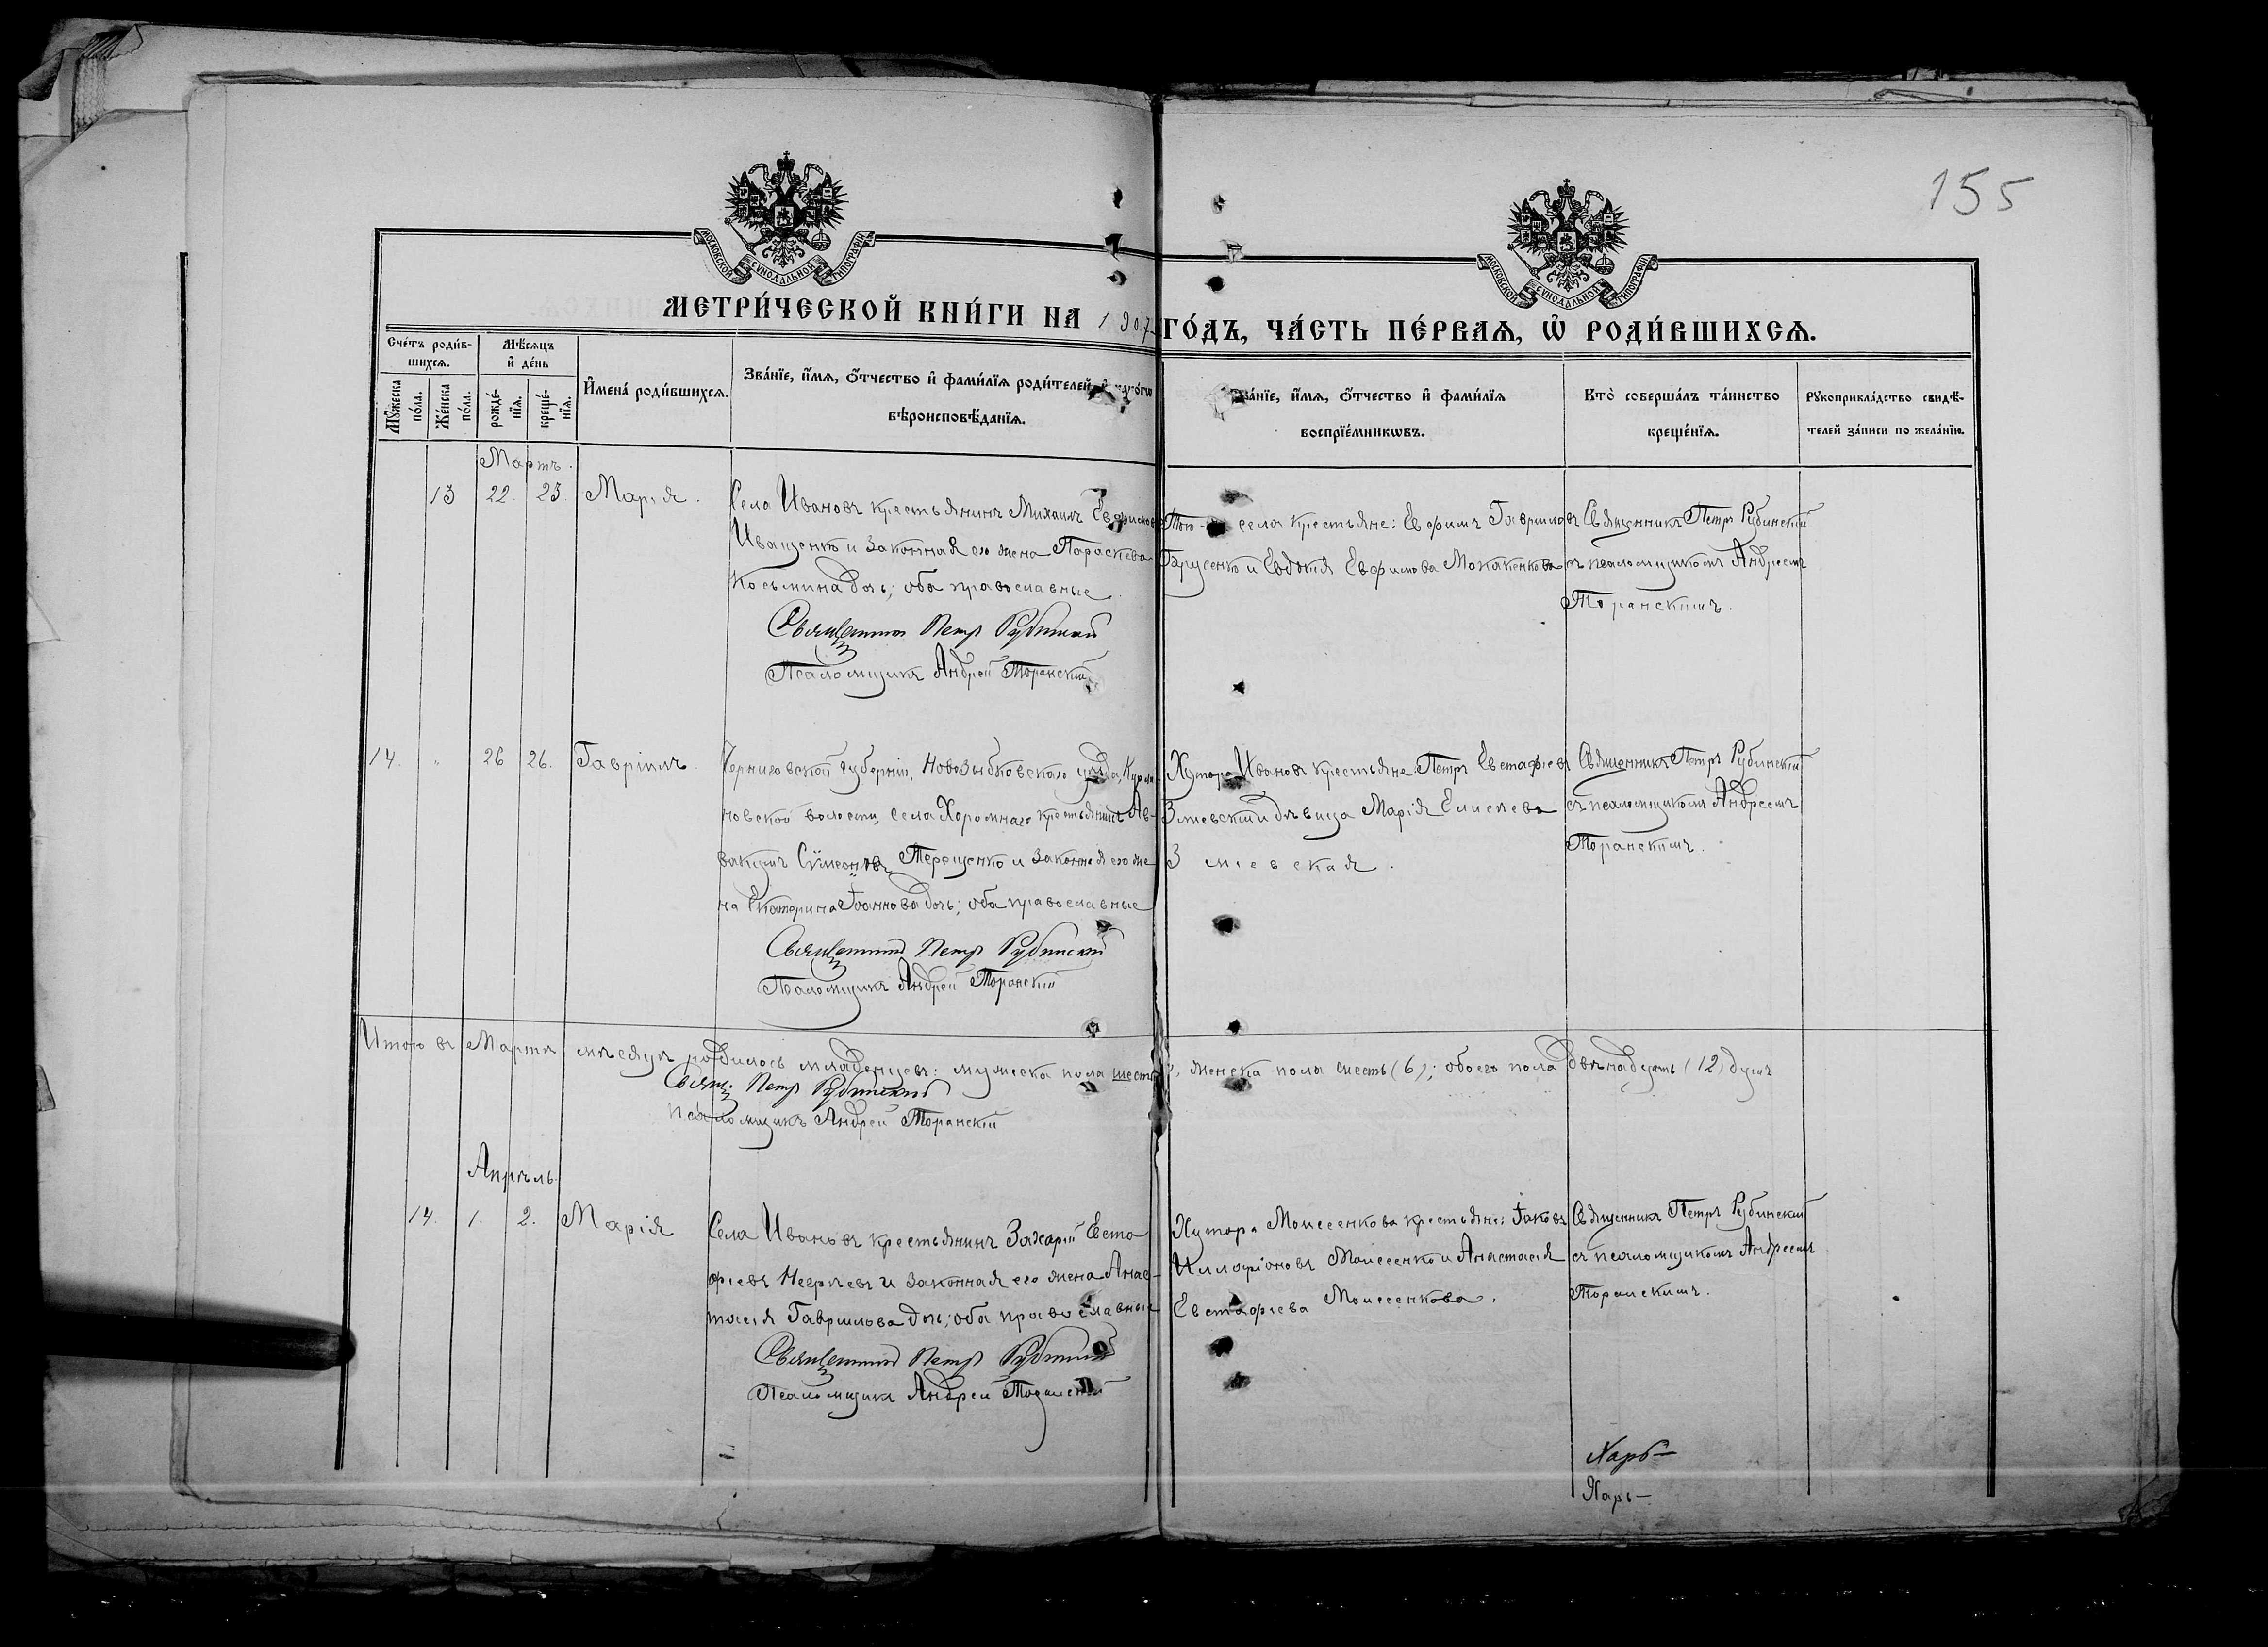 155
МОСКОВСКОЙ СѴНОДАЛЬНОЙ ТИПОГРАФІИ
МОСКОВСКОЙ СѴНОДАЛЬНОЙ ТИПОГРАФІИ
МЕТРИ́ЧЕСКОЙ КНИ́ГИ НА 1907 ГО́ДЪ, ЧА́СТЬ ПЕ́РВАѦ, Ѡ҆ РОДИ́ВШИХСѦ.
Сче́тъ роди́в-
шихсѧ.
Мѣ́сѧцъ
и҆ де́нь
Мꙋ́жеска по́ла.
Же́нска по́ла.
рожде́-
нїѧ.
креще́-
нїѧ.
И҆мена̀ роди́вшихсѧ.
Зва́нїе, и҆́мѧ, ѻ҆́тчество и҆ фами́лїѧ роди́телей, и҆
вѣроисповѣ́данїѧ.
Зва́нїе, и҆́мѧ, ѻ҆́тчество и҆ фами́лїѧ
воспрїе́мникѡвъ.
Кто̀ соверша́лъ та́инство
креще́нїѧ.
Рꙋкоприкла́дство свидѣ́-
телей за́писи по жела́нїю.
Мартъ.
13 22. 23. Марія.
Села Ивановъ крестьянинъ Михаилъ
Иващенко и законная его жена Параскева
Косьмина дочь; оба православные.
Священникъ Петр Рубинский
Псаломщикъ Андрей Торанскій
Того села крестьяне: Ефимъ Гавриловъ
и Евдокія Ефимова
Священникъ Петръ Рубинскій
съ псаломщикомъ Андреемъ
Торанскимъ.
14. " 26 26. Гавріилъ
Черниговской губерніи, Новозыбковского уѣзда,
новской волости, села Хоромнаго крестьянинъ Ав-
вакумъ Сѵмеоновъ Терещенко и законная его же
на Екатерина Іоаннова дочь; оба православные
Священникъ Петр Рубинский
Псаломщикъ Андрей Торанскій
Хутора Ивановъ крестьяне: Петръ Евстафіевъ
Змiевскій и дѣвица Марія Елисеева
Зміевская.
Священникъ Петръ Рубинскій
съ псаломщикомъ Андреемъ
Торанскимъ.
Итого въ Мартѣ мѣсяцѣ родилось младенцевъ: мужеска пола шесть, женска пола шесть (6); обоего пола двѣнадцать (12) душъ
Свящ. Петр Рубинский
Псаломщикъ Андрей Торанскій
Апрѣль
14. 1. 2. Марія
Села Ивановъ крестьянинъ Захарій Евста
фіевъ и законная его жена Анас-
тасія Гаврилова дочь; оба православные
Священникъ Петр Рубинский
Псаломщикъ Андрей Торанскій
Хутора Моисеенкова крестьяне: Іаковъ
Илларіоновъ Моисеенко и Анастасія
Евстафіева Моисеенкова.
Священникъ Петръ Рубинскій
съ псаломщикомъ Андреемъ
Торанскимъ.